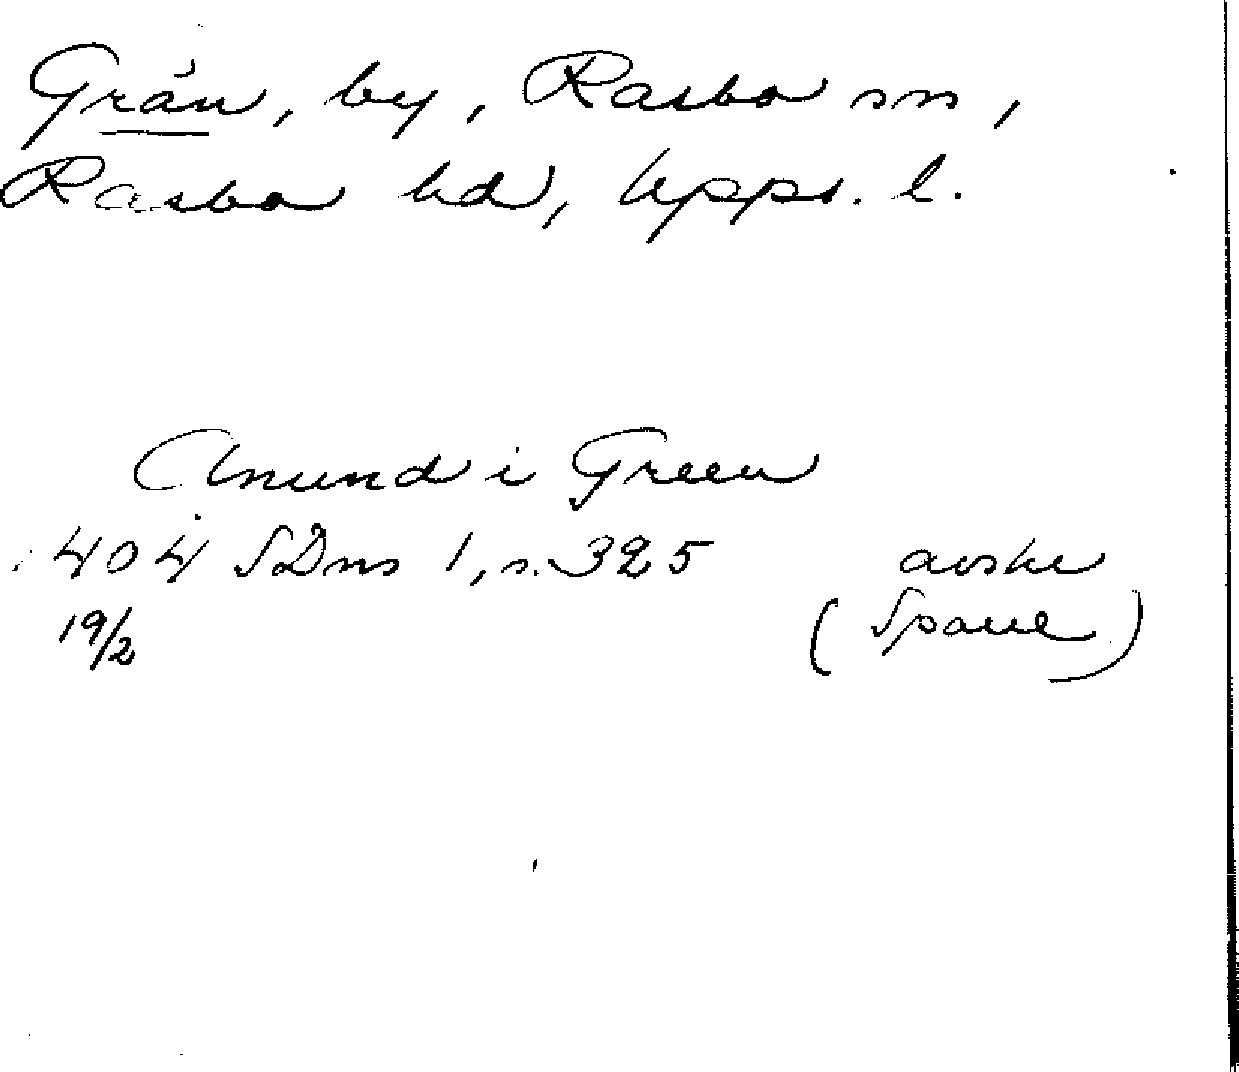 Grån, by, Rasbo sn,
Rasbo hd, Upps. l.
Anund i Green
404 SDns 1, s. 325 avskr
19/2 (Spaue)